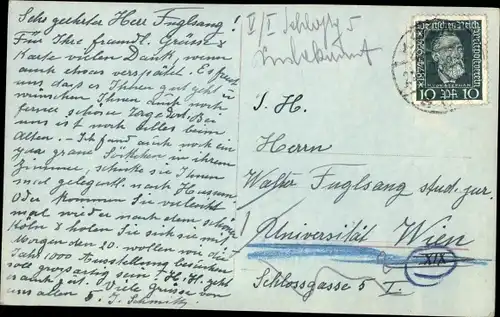 Sehr geehrter Herr Fuglsang!
Für Ihre freundl. Grüsse u.
Karte vielen Dank, wenn
auch etwas verspätet. Es freut
uns, dass es Ihnen gut geht u.
wünschen Ihnen auch noch
ferner schöne Tage dort. Bei
uns ist noch alles beim
Alten. – Ich fand auch noch ein
paar graue Söckchen in ihrem
Zimmer, schicke sie Ihnen
mal gelegentl. nach Husum.
Oder kommen Sie vielleicht
mal wieder nach dem schönen
Köln u. holen Sie sich sie mit.
Morgen den 20. wollen wir die
Jahr 1000 Ausstellung besuchen,
soll grossartig sein!
es auch gut. Viele Grüsse von
uns allen J. Schmitz
V/I Schloßg 5
Unbekannt
Deutsches Reich
Weltpostverein
H. von Stephan
10 10
S. H.
Herrn
Walter Fuglsang stud. jur.
Universität Wien
XIX
Schlossgasse 5 V.